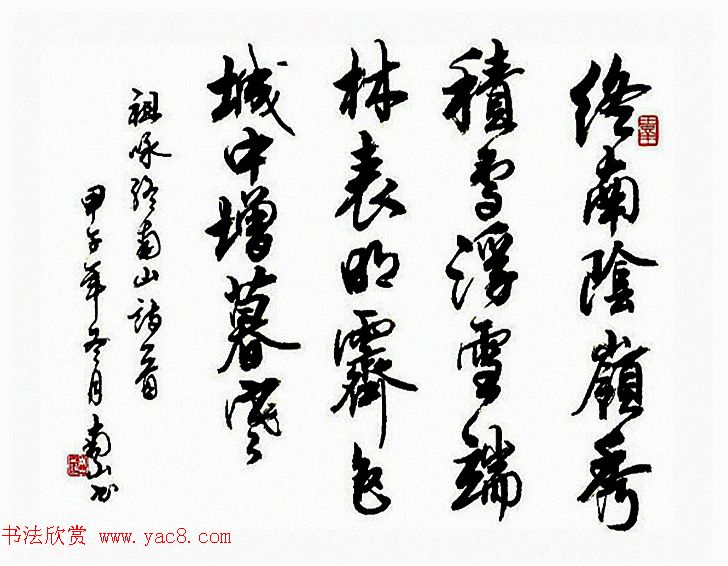 終南陰嶺秀
積雪浮雲端
林表明霽色
城中增暮寒
祖咏終南山詩一首
甲午年冬月南山书
书法欣赏 www.yac8.com